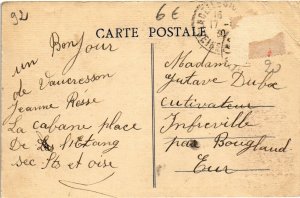 92
6€
CARTE POSTALE
un Bonjour
de Vaucresson
Jeanne Rosse
La cabane place
De L'Etang
sec. St et oise
Madame
Gustave Dubo
Cultivateur
Infreville
par Bougtaud
Eur
92